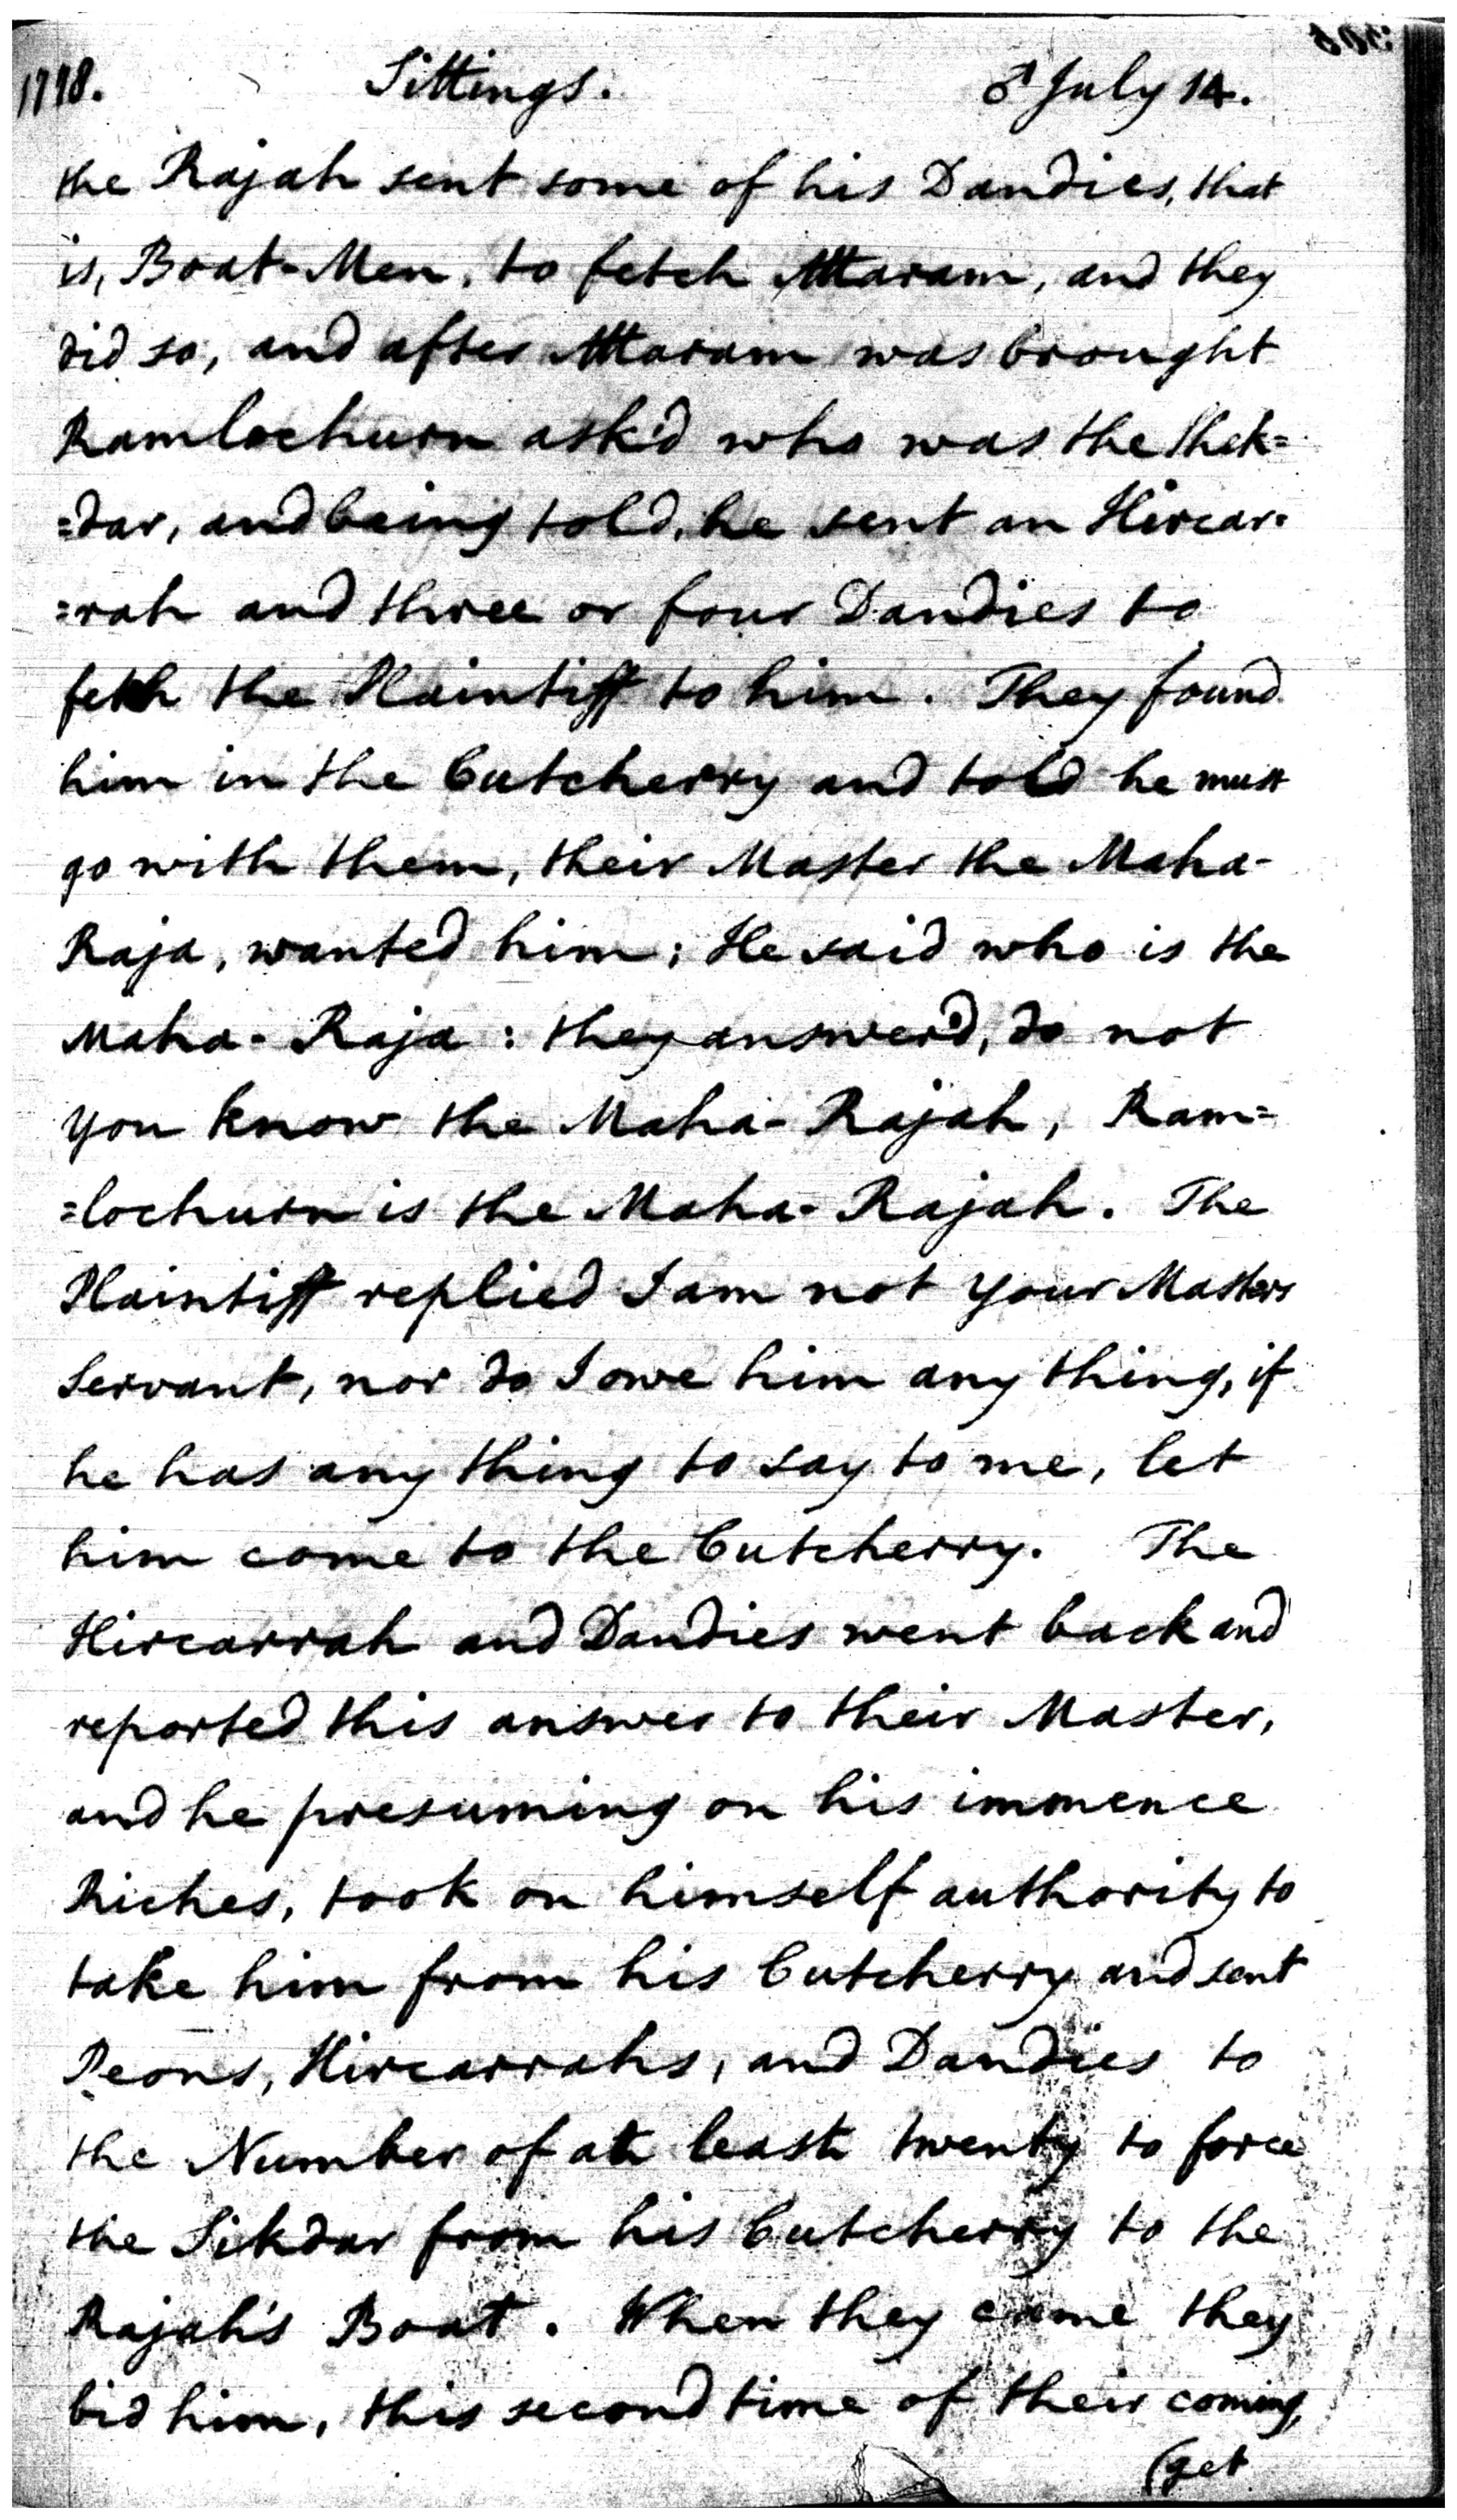 1778. Sittings. ♂ July 14.
the Rajah sent some of his Dandies, that
is, Boat-Men, to fetch Attaram, and they
did so, and after Attaram was brought
Ramlochurn ask'd who was the Shek=
=dar, and being told, he sent an Hircar=
=rah and three or four Dandies to
fetch the Plaintiff to him. They found
him in the Cutcherry and told he must
go with them, their Master the Maha-
Raja, wanted him; He said who is the
Maha-Raja: they answer'd, do not
you know the Maha-Rajah, Ram=
=lochurn is the Maha-Rajah. The
Plaintiff replied I am not your Masters
Servant, nor do I owe him any thing, if
he has any thing to say to me, let
him come to the Cutcherry. The
Hircarrah and Dandies went back and
reported this answer to their Master,
and he presuming on his immence
Riches, took on himself authority to
take him from his Cutcherry and sent
Peons, Hircarrahs, and Dandies to
the Number of at least twenty to force
the Sikdar from his Cutcherry to the
Rajah's Boat. When they came they
bid him, this second time of their coming,
(get